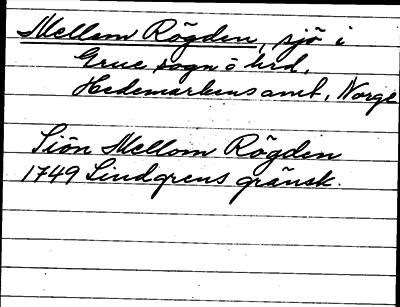 Mellom Rögden, sjö i
Grue sogn o hrd,
Hedemarkens amt, Norge
Siön Mellom Rögden
1749 Lindgrens gränsk.